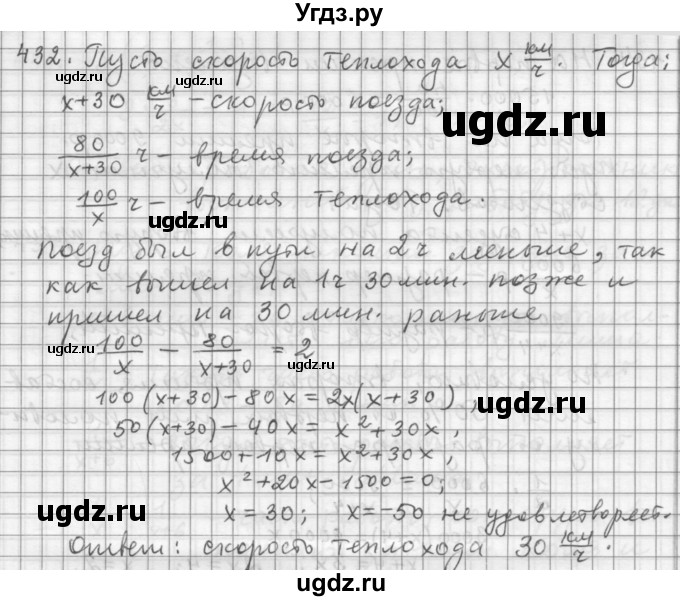 Угдз.ру
432. Пусть скорость теплохода x км/ч. Тогда:
x+30 км/ч – скорость поезда;
80/(x+30) ч – время поезда;
100/x ч – время теплохода.
Поезд был в пути на 2ч меньше, так
как вышел на 1ч 30 мин. позже и
пришел на 30 мин. раньше
100/x – 80/(x+30) = 2
100(x+30) – 80x = 2x(x+30),
50(x+30) – 40x = x²+30x,
1500+10x = x²+30x,
x²+20x–1500=0;
x=30; x=–50 не удовлетворяет.
Ответ: скорость теплохода 30 км/ч.
ugdz.ru
ugdz.ru
ugdz.ru
ugdz.ru
ugdz.ru
ugdz.ru
ugdz.ru
ugdz.ru
ugdz.ru
ugdz.ru
ugdz.ru
ugdz.ru
ugdz.ru